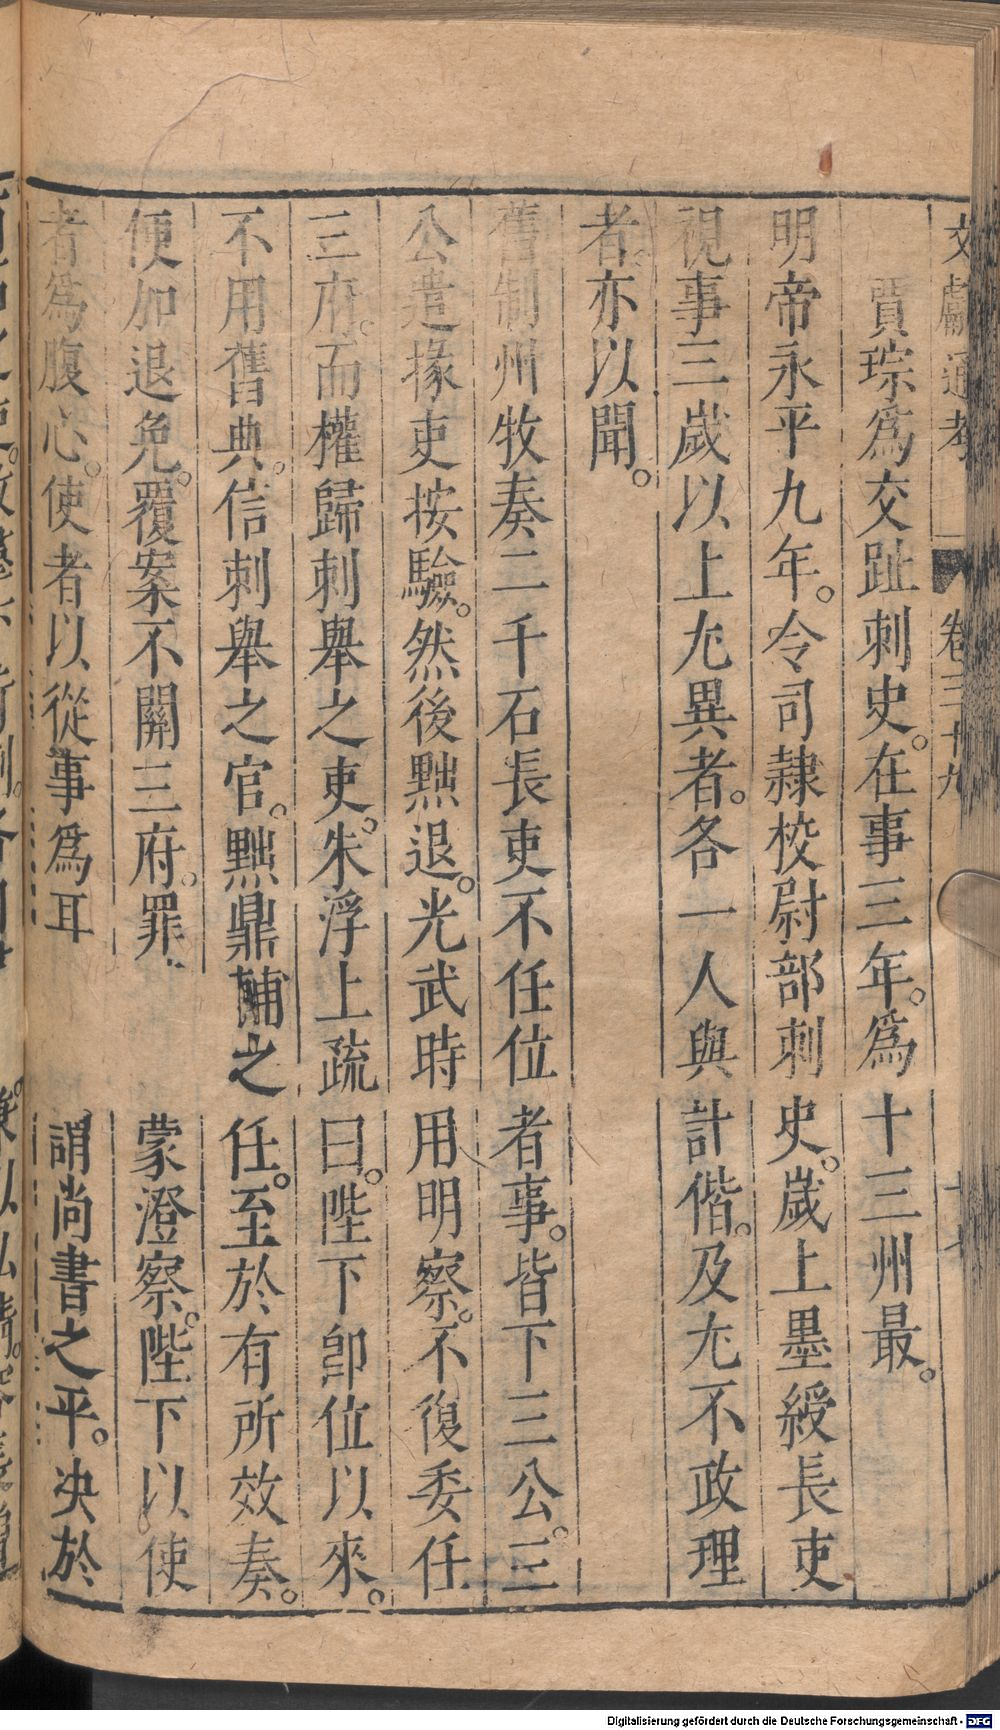 文獻通考 卷三十九 十七
賈琮為交趾刺史。在事三年。為十三州最。
明帝永平九年。令司隸校尉部刺史。歲上墨綬長吏
視事三歲以上尤異者。各一人與計偕。及尤不政理
者。亦以聞。
舊制州牧奏二千石長吏不任位者事。皆下三公。三
公遣掾吏按驗。然後黜退。光武時用明察。不復委任
三府。而權歸刺舉之吏。朱浮上疏曰。陛下卽位以來。
不用舊典。信刺舉之官。黜鼎輔之任。至於有所效奏。
便加退免。覆案不關三府。罪 蒙澄察。陛下以使
者為腹心。使者以從事為耳 謂尚書之平。决於
Digitalisierung gefördert durch die Deutsche Forschungsgemeinschaft - DFG